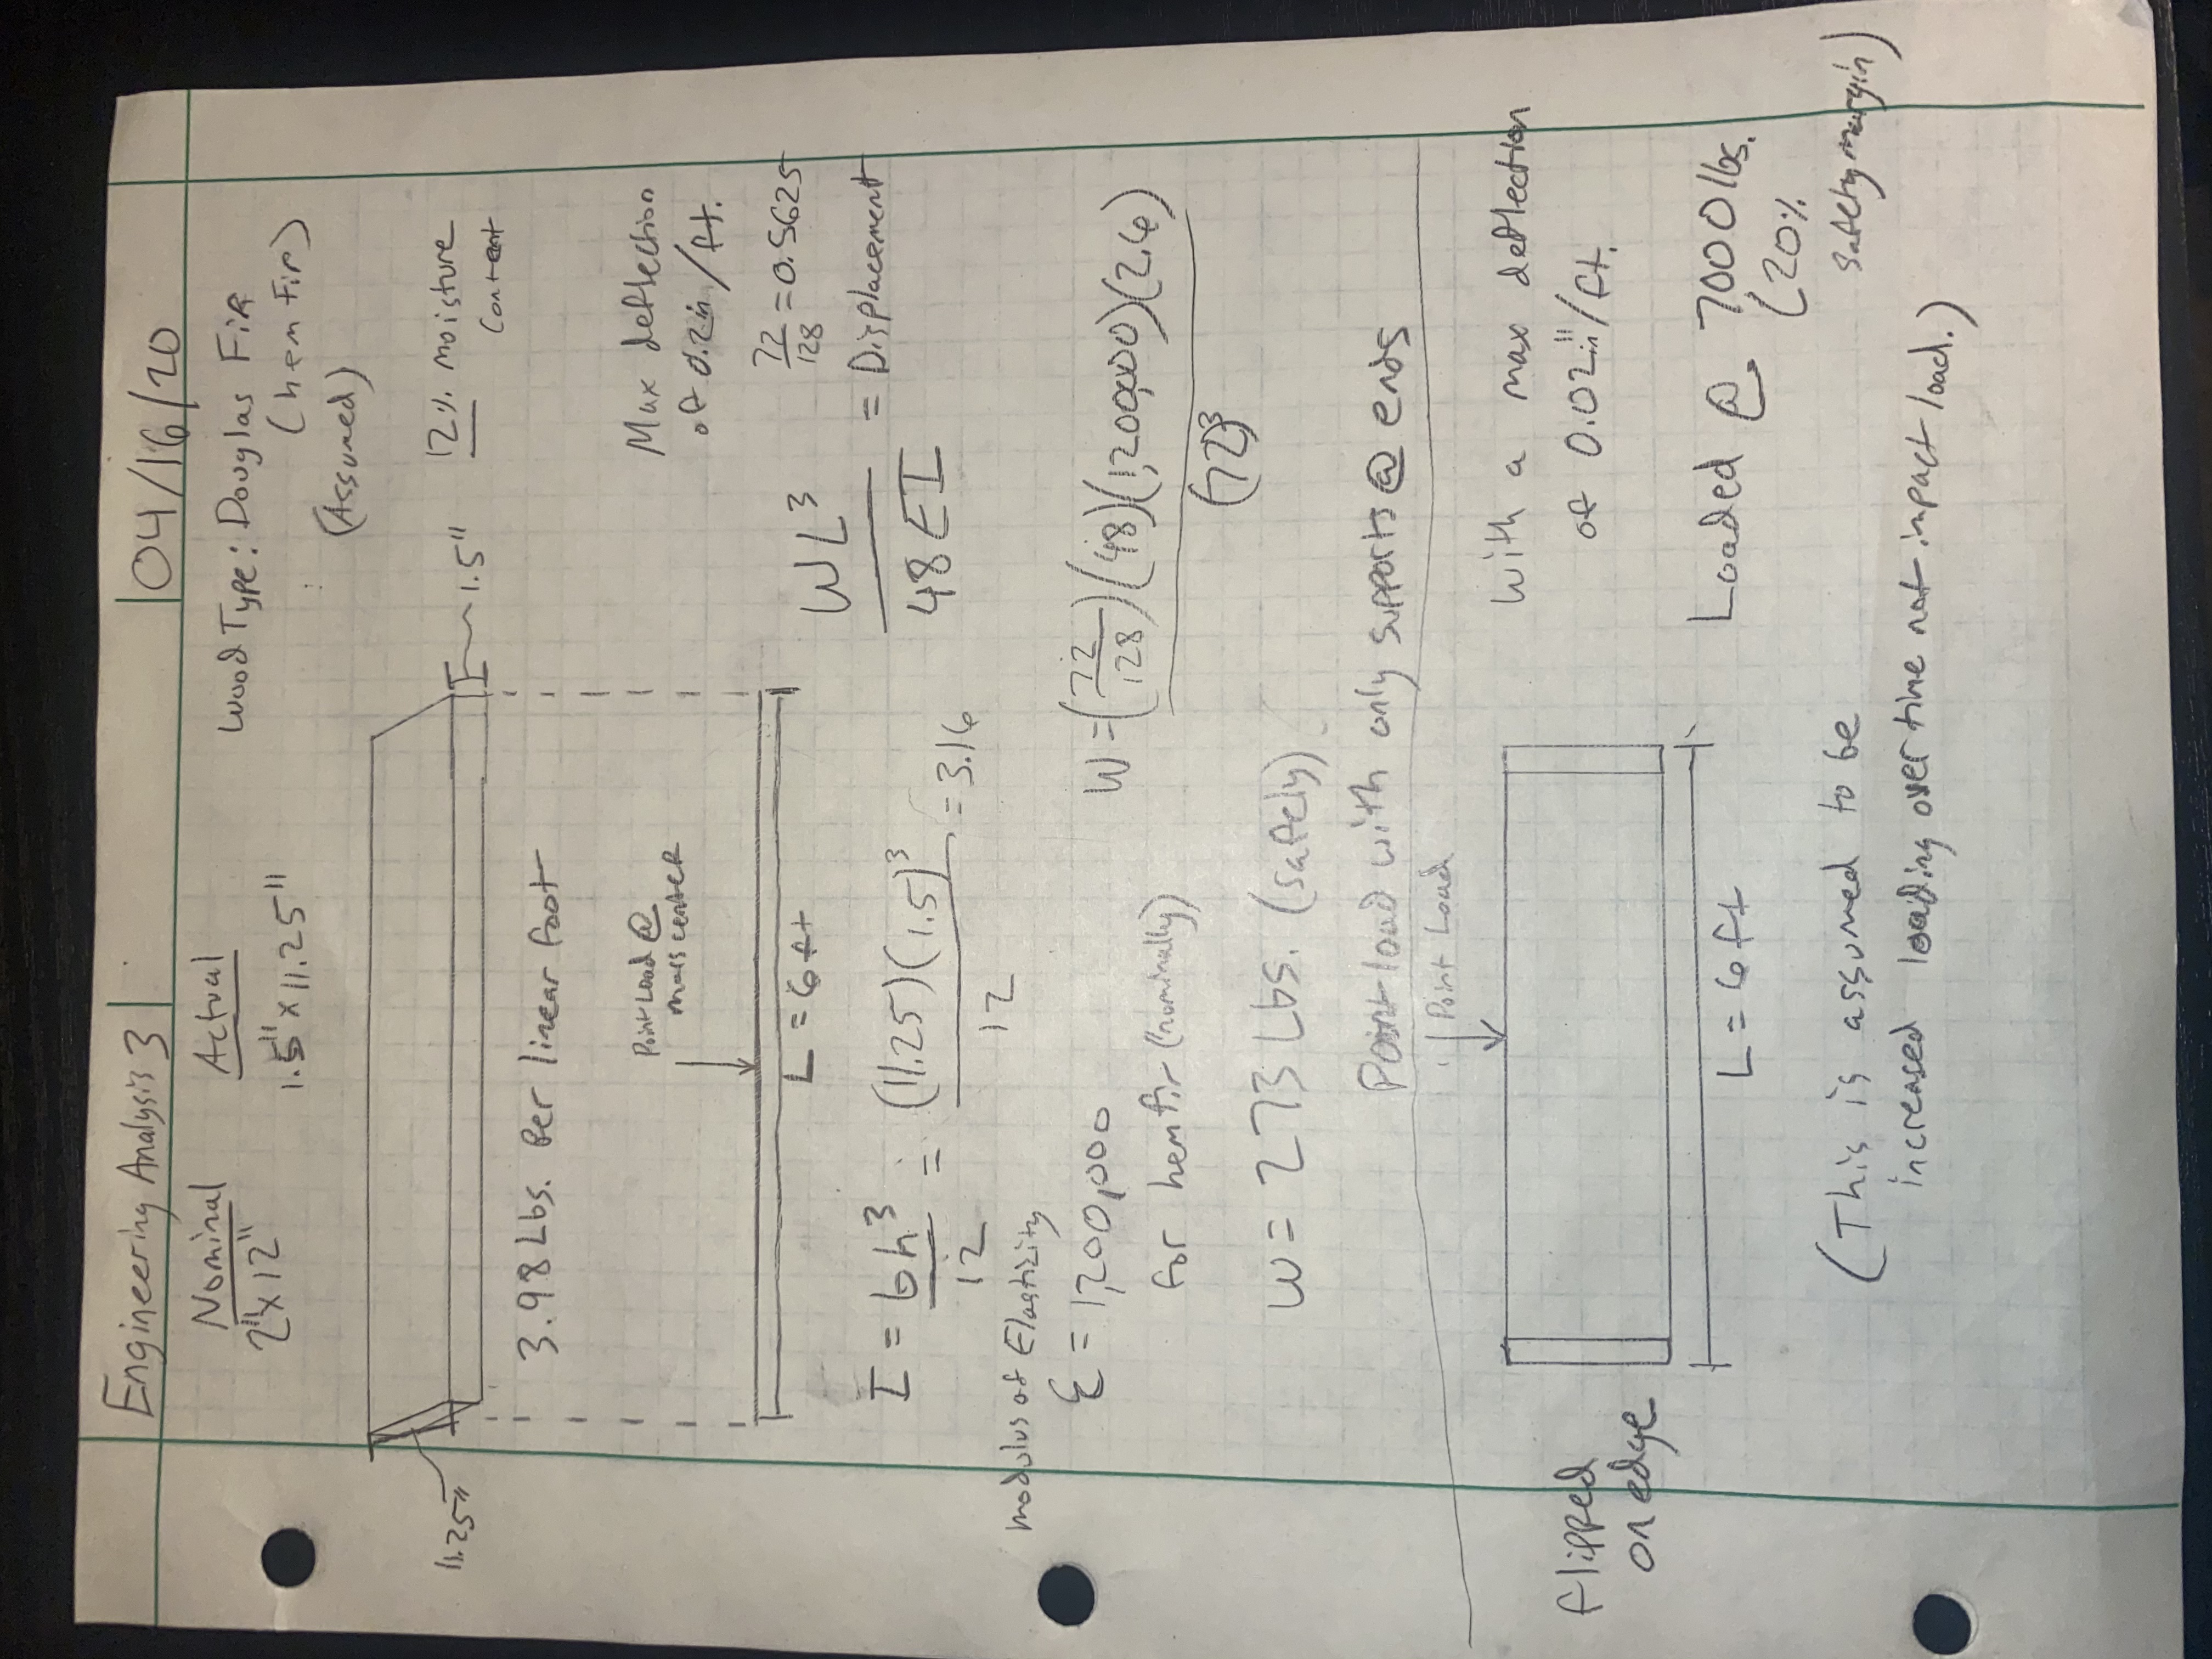 Engineering Analysis 3
04/16/20
Nominal
2"x12"
Actual
1.5"x11.25"
Wood Type: Douglas Fir
(hem Fir)
(Assumed)
11.25"
1.5"
12% moisture
Content
3.98 Lbs. Per linear foot
Point Load @
mass center
L = 6 ft
Max deflection
of 0.2in/ft.
72/128 = 0.5625
WL³/48EI = Displacement
I = bh³/12 = (11.25)(1.5)³/12 = 3.16
Modulus of Elasticity
E = 1,200,000
for hemfir (nominally)
W = (72/128)(48)(1,200,000)(2.6)/(72)³
W = 273 Lbs. (safely)
Point load with only supports @ ends
Point Load
flipped
on edge
L = 6 ft
With a max deflection
of 0.02in"/ft.
Loaded @ 7,000 lbs.
(20%
safety margin)
(This is assumed to be
increased loading over time not impact load.)